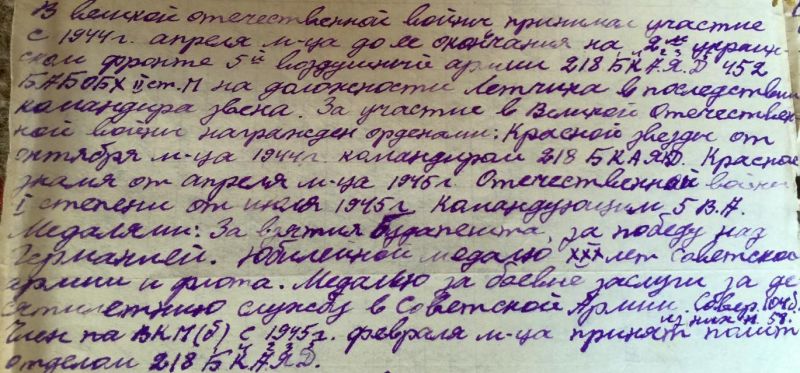 В великой отечественной войни принимал участие
с 1944 г. апреля м-ца до ее окончания на 2м украин-
ском фронте 5й воздушный армии 218 БКАЯД 452
БАБОБХ II ст. М на должности Летчика в последствии
командира звена. За участие в Великой Отечествен-
ной войни награжден орденами: Красной звезды от
октября м-ца 1944 г. командиром 218 БКАЯД. Красное
знамя от апреля м-ца 1945 г. Отечественной войни
I степени от июля 1945 г. Командующим 5 В.А.
Медалями: За взятия Будапешта, за победу над
Германией. Юбилейной медалю XXX лет Советской
армии и флота. Медалью за боевые заслуги за де-
сятилетнию службу в Советской Армии. Совер. 104 б.
из них н. 58.
Член па ВКП(б) с 1945 г. февраля м-ца принят полит
отделом 218 БКАЯД.